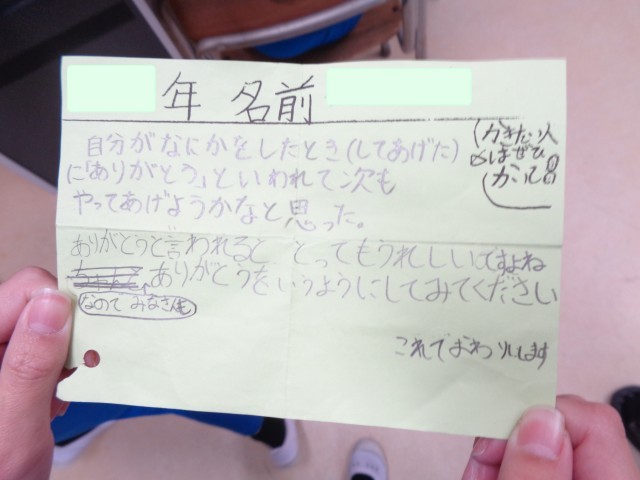 年 名前
(かきたい人
はぜひ
かいてね
自分がなにかをしたとき(してあげた)
に「ありがとう」といわれて次も
やってあげようかなと思った。
ありがとうと言われると、とってもうれしいですよね
ありがとうをいうようにしてみてください
なので みなさんも
これでおわりにします